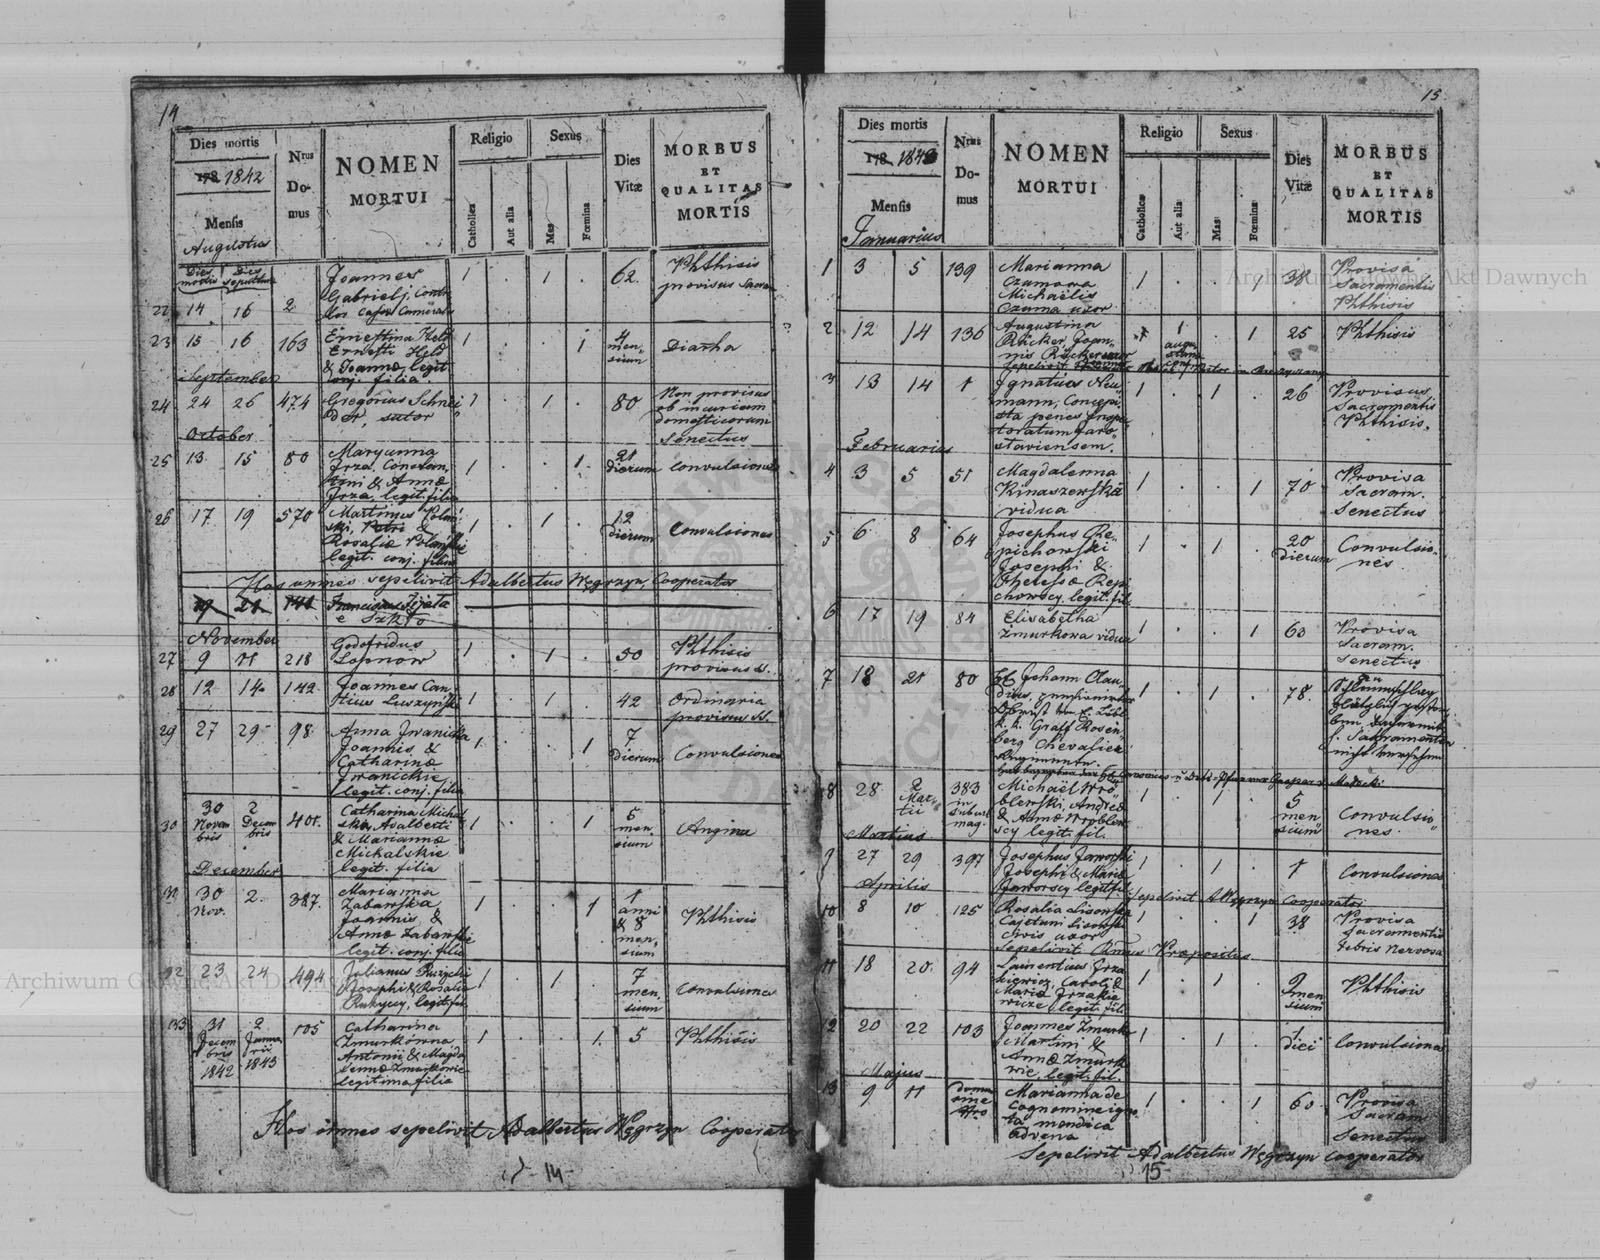 14
Dies mortis
178 1842
Mensis
Nrus
Do-
mus
NOMEN
MORTUI
Religio
Catholica
Aut alia
Sexus
Mas
Fœmina
Dies
Vitæ
MORBUS
ET
QUALITAS
MORTIS
Augustus
Dies mortis Dies sepulturae
22 14 16 2 Joannes
Gabrielj, Contr
1 1 62 Phthisis
provisus Sacra
23 15 16 163 Ernestina Held
Ernesti Held
& Joannæ legit
conj. filia.
1 1 4
men
sium
Diarrha
September
24 24 26 474 Gregorius Schnei
der, sutor
1 1 80 Non provisus
ob incuriam
domesticorum
Senectus
October
25 13 15 80 Maryanna
Jrza, Constan,
tini & Annæ
Jrza, legit. filia
1 1 21
dierum
Convulsiones
26 17 19 570 Martinus Polań
ski, Petri &
Rosaliæ Polańskie
legit. conj. filius
1 1 12
dierum
Convulsiones
Hos omnes sepelivit Adalbertus Węgrzyn, Cooperator
19 21 141 Franciscus Fijata
e Szkło
November
27 9 11 218 Godofridus
Lopnow
1 1 50 Phthisis
provisus S.
28 12 14 142 Joannes Can
tius Luszyński
1 1 42 Ordinaria
provisus SS.
29 27 29 98 Anna Jwanicka
Joannis &
Catharinæ
Jwanickie
legit. conj. filia
1 1 7
dierum
Convulsiones
30 30
Novem
bris
2
Decem
bris
401. Catharina Michal
ska Adalberti
& Mariannæ
Michalskie
legit. filia
1 5
men
sium
Angina
December
31 30
Nov.
2. 387. Marianna
Zabawska
Joannis &
Annæ Zabawskie
legit. conj. filia
1 1 1
anni
& 8
men
sium
Phthisis
32 23 24 494 Julianus Ruzycki
Josephi & Rosaliæ
legit. fil.
1 1 7
men
sium
Convulsiones
33 31
Decem
bris
1842
2
Janua
rii
1843
105 Catharina
Zmurkowna
Antonii & Magda
lenæ Zmurkowie
legitima filia
1 1 5 Phthisis
Hos omnes sepelivit Adalbertus Węgrzyn Cooperator
- 14 -
15
Dies mortis
178 1843
Mensis
Nrus
Do-
mus
NOMEN
MORTUI
Religio
Catholica
Aut alia
Sexus
Mas
Fœmina
Dies
Vitæ
MORBUS
ET
QUALITAS
MORTIS
Januarius
1 3 5 139 Marianna
Czamara
Michaëlis
Czama uxor
1 1 38 Provisa
Sacramentis
Phthisis
2 12 14 136 Augustina
Rücker, Joan
nis Rücker uxor
1 1 25 Phthisis
sepelivit
3 13 14 1 Ignatius Neu
mann, Concepi
sta penes Inspec
toratum Jaro
slaviensem.
1 1 26 Provisus
Sacramentis
Phthisis.
Februarius
4 3 5 51 Magdalenna
Kinaszewska
vidua
1 1 70 Provisa
Sacram.
Senectus
5 6 8 64 Josephus Re
pichowski
Josephi &
Theresæ Repi
chowscy, legit. fil.
1 1 20
dierum
Convulsio
nes
6 17 19 84 Elisabetha
Zmurkowa vidua
1 1 63 Provisa
Sacram.
Senectus
7 18 21 80 Johann Clau
dius
k. k. Graff Rosen
berg Chevalier
Regimente.
1 1 78.
8 28 2
Mar
tii
383
in
subur.
mag.
Michael Wró
blewski, Andreæ
& Annæ Wroblew
scy legit. fil.
1 1 5
men
sium
Convulsio
nes
Martius
9 27 29 397 Josephus Jaworski
Josephi & Mariæ
Jaworscy legit. fil.
1 1 1 Convulsiones
Sepelivit A Węgrzyn Cooperator
Aprilis
10 8 10 125 Rosalia Lisowska
Cajetani Lisowski
civis uxor
1 38 Provisa
Sacramentis
Febris Nervosa
Sepelivit Præpositus
11 18 20 94 Laurentius Jrza
kiewicz, Caroli &
Mariæ Jrzakie
wicze legit. fil.
1 1 9
men
sium
Phthisis
12 20 22 103 Joannes Zmurko
Martini &
Annæ Zmurk
wie, legit. fil.
1 1 1
diei
Convulsiones
Majus
13 9 11 domu
sine
Nro
Marianna de
cognomine igno
ta mendica
advena
1 1 60 Provisa
Sacram
Senectus
Sepelivit Adalbertus Węgrzyn Cooperator
15
Archiwum Główne Akt Dawnych
Archiwum Główne Akt Dawnych